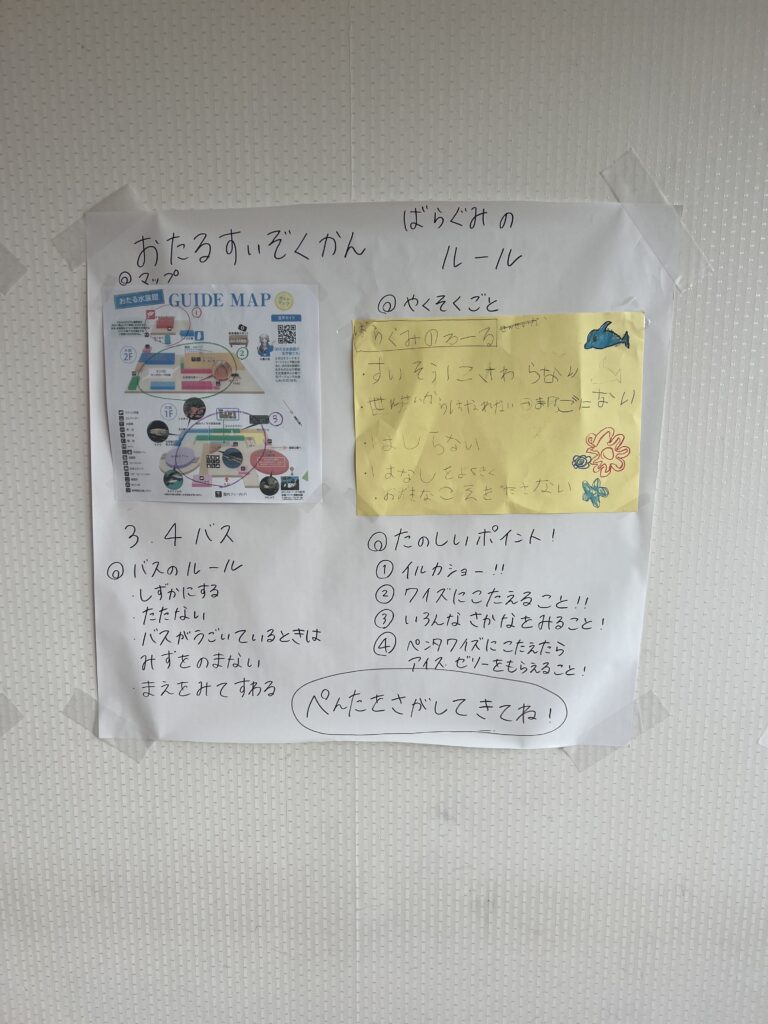 おたるすいぞくかん
◎マップ
おたる水族館 GUIDE MAP
2F
①
②
1F
③
3.4バス
◎バスのルール
・しずかにする
・たたない
・バスがうごいているときは
みずをのまない
・まえをみてすわる
ばらぐみの
ルール
◎やくそくごと
らぐみのるーる
・すいそうにさわらない
・はしらない
・はなしをよくきく
・おおきなこえをださない
◎たのしいポイント!
①イルカショー!!
②クイズにこたえること!!
③いろんなさかなをみること!
④ペンタクイズにこたえたら
アイズゼリーをもらえること!
ぺんたをさがしてきてね!